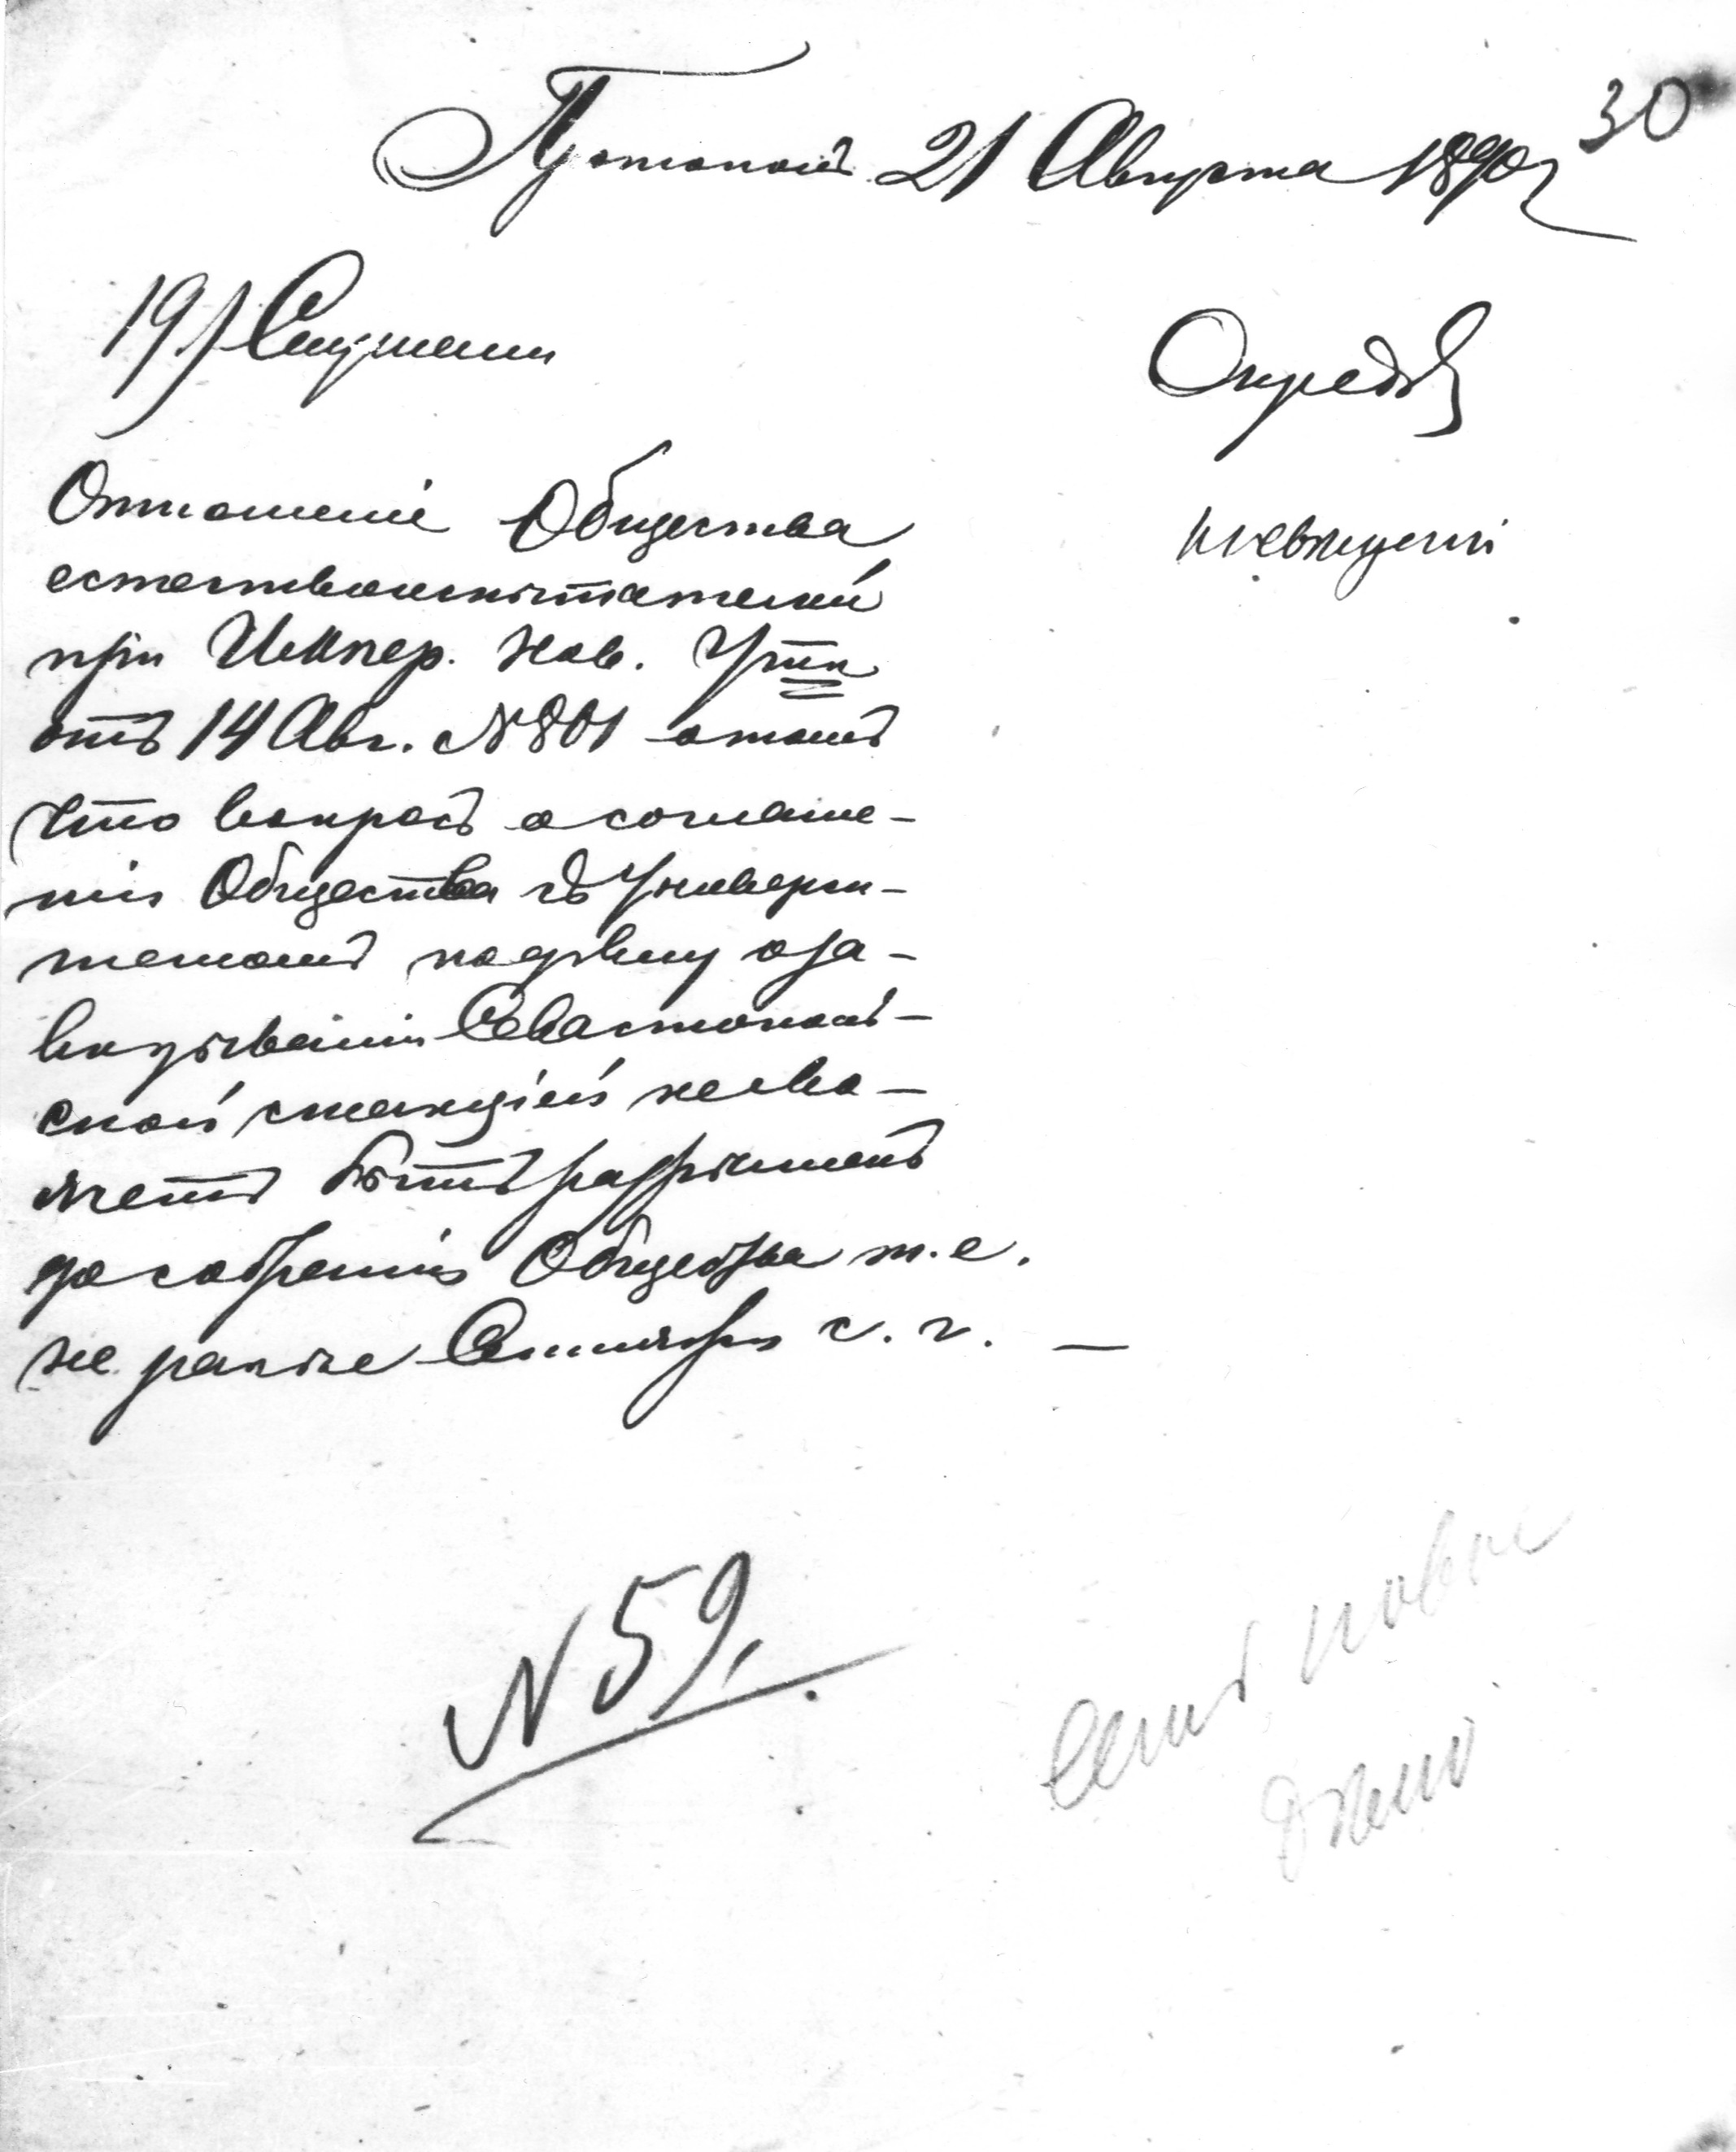 30
Протоколъ 21 Августа 1890 г
19) Слушали
Опредѣл
Отношеніе Общества
естествоиспытателей
при Импер. Нов. Унтѣ
отъ 14 Авг. № 801 о томъ
что вопросъ о соглаше-
ніи Общества съ Универси-
тетомъ по дѣлу о за-
вѣдываніи Севастополь-
ской станціей не мо-
жетъ быть разрѣшенъ
до собранія Общества т.е.
не ранѣе Сентября с. г. —
къ свѣдѣнію
№ 59.